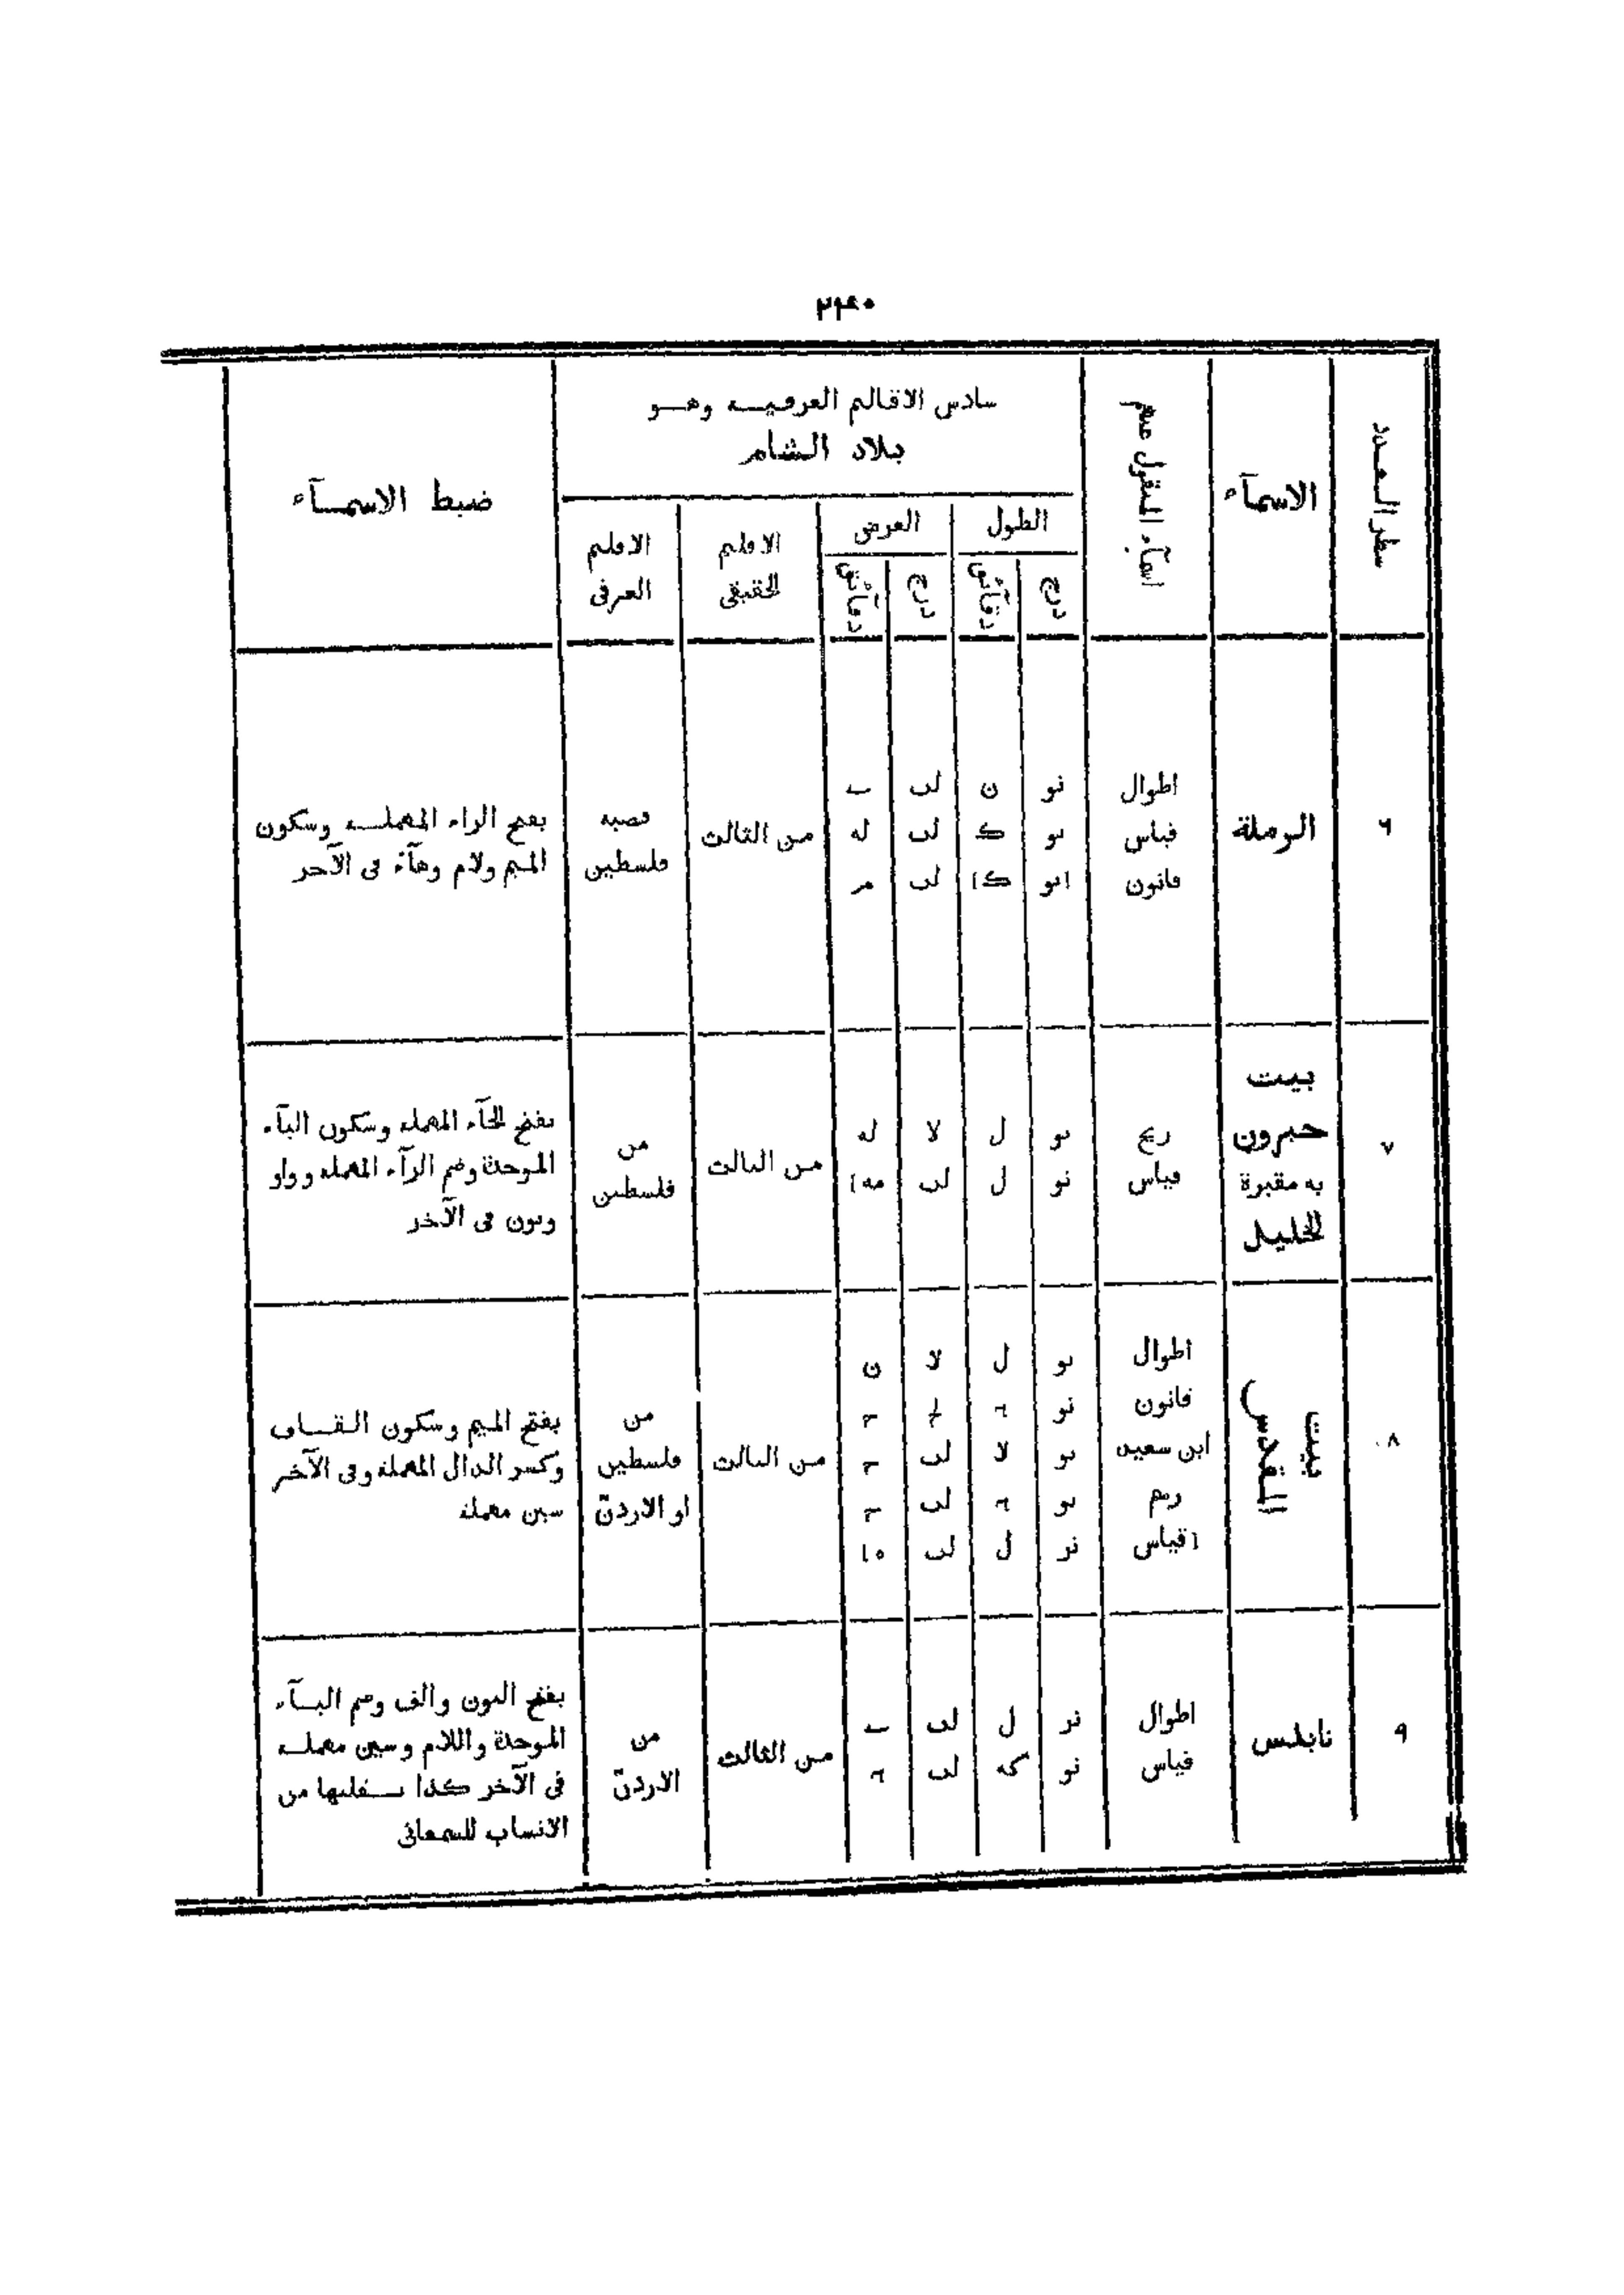 ٢٤٠
سطر العدد
الاسمآء
اسمآء المنقول عنهم
سادس الاقاليم العرفيه وهو
بلاد الشام
الطول
درج
دقآئق
العرض
درج
دقآئق
الاقليم
الحقيقى
الاقليم
العرفى
ضبط الاسمآء
٦
الرملة
اطوال
قياس
قانون
نو
نو
نو
ن
ك
ك
لب
لب
لب
له
م
من الثالث
قصبه
فلسطين
بفتح الراء المهمله وسكون
الميم ولام وهآء فى الآخر
٧
بيت
حبرون
به مقبرة
الخليل
ريج
قياس
نو
نو
ل
ل
لا
لب
له
مه
من الثالث
من
فلسطين
بفتح الحآء المهمله وسكون البآء
الموحدة وضم الرآء المهمله وواو
ونون فى الآخر
٨
بيت
المقدس
اطوال
قانون
ابن سعيد
رسم
قياس
نو
نو
نو
نو
نز
ل
لا
ل
لا
لب
لب
لب
ن
من الثالث
من
فلسطين
او الاردنّ
بفتح الميم وسكون القاف
وكسر الدال المهملة وفى الآخر
سين مهملة
٩
نابلس
اطوال
قياس
نز
نو
ل
كه
لب
لب
من الثالث
من
الاردنّ
بفتح النون والف وضم البآء
الموحدة واللام وسين مهمله
فى الآخر كذا نقلتها من
الانساب للسمعانى